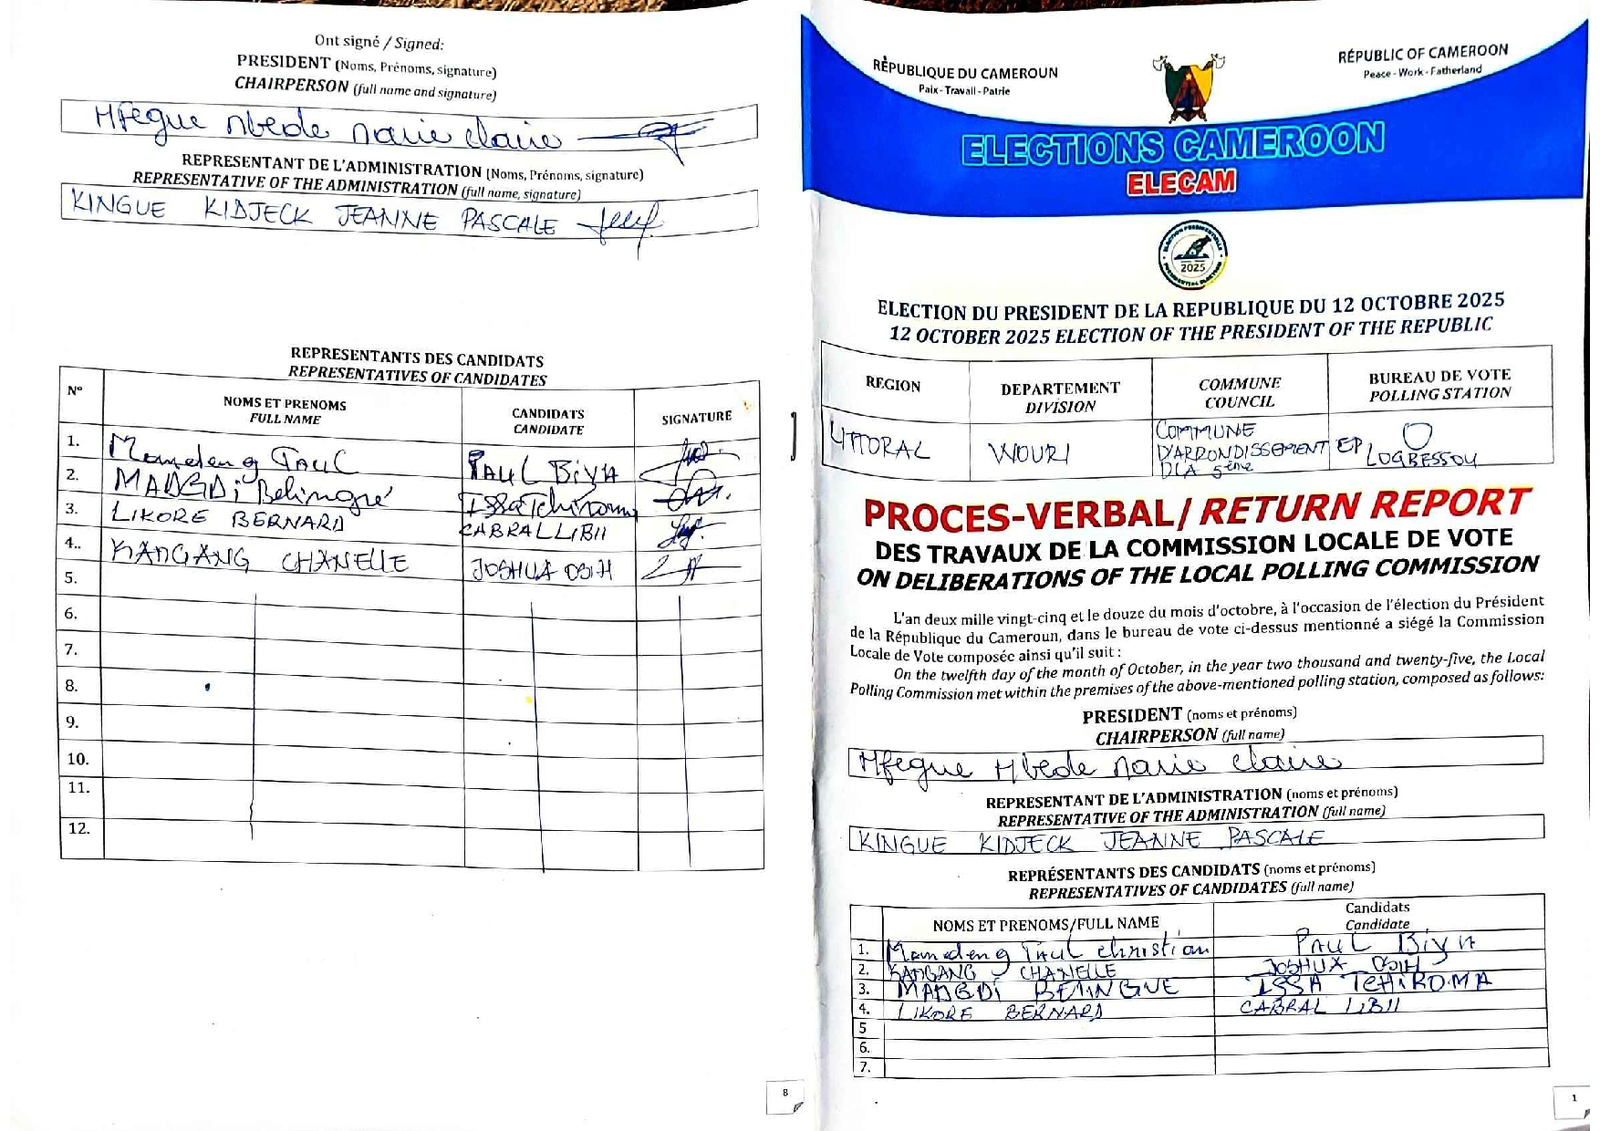 Ont signé / Signed:
PRESIDENT (Noms, Prénoms, signature)
CHAIRPERSON (full name and signature)
Mfegue Mbede Marie Claire
REPRESENTANT DE L'ADMINISTRATION (Noms, Prénoms, signature)
REPRESENTATIVE OF THE ADMINISTRATION (full name, signature)
KINGUE KIDJECK JEANNE PASCALE
REPRESENTANTS DES CANDIDATS
REPRESENTATIVES OF CANDIDATES
N° NOMS ET PRENOMS CANDIDATS SIGNATURE
FULL NAME CANDIDATE
1. Mamdeng PAUL PAUL BIYA
2. MADGDI Belingué Issa Tchiroma
3. LIKORE BERNARD CABRAL LIBII
4.. KANGANG CHANELLE JOSHUA OSIH
5.
6.
7.
8.
9.
10.
11.
12.
8
RÉPUBLIQUE DU CAMEROUN
Paix - Travail - Patrie
RÉPUBLIC OF CAMEROON
Peace - Work - Fatherland
ELECTIONS CAMEROON
ELECAM
ELECTION PRESIDENTIELLE
2025
PRESIDENTIAL ELECTION
ELECTION DU PRESIDENT DE LA REPUBLIQUE DU 12 OCTOBRE 2025
12 OCTOBER 2025 ELECTION OF THE PRESIDENT OF THE REPUBLIC
REGION DEPARTEMENT COMMUNE BUREAU DE VOTE
DIVISION COUNCIL POLLING STATION
LITTORAL WOURI COMMUNE D'ARRONDISSEMENT DLA 5ème EP LOGBESSOU
PROCES-VERBAL/ RETURN REPORT
DES TRAVAUX DE LA COMMISSION LOCALE DE VOTE
ON DELIBERATIONS OF THE LOCAL POLLING COMMISSION
L'an deux mille vingt-cinq et le douze du mois d'octobre, à l'occasion de l'élection du Président
de la République du Cameroun, dans le bureau de vote ci-dessus mentionné a siégé la Commission
Locale de Vote composée ainsi qu'il suit :
On the twelfth day of the month of October, in the year two thousand and twenty-five, the Local
Polling Commission met within the premises of the above-mentioned polling station, composed as follows:
PRESIDENT (noms et prénoms)
CHAIRPERSON (full name)
Mfegue Mbede Marie Claire
REPRESENTANT DE L'ADMINISTRATION (noms et prénoms)
REPRESENTATIVE OF THE ADMINISTRATION (full name)
KINGUE KIDJECK JEANNE PASCALE
REPRÉSENTANTS DES CANDIDATS (noms et prénoms)
REPRESENTATIVES OF CANDIDATES (full name)
NOMS ET PRENOMS/FULL NAME Candidats
Candidate
1. Mamdeng PAUL christian PAUL BIYA
2. KANGANG CHANELLE JOSHUA OSIH
3. MADGDI BELINGUE ISSA TCHIROMA
4. LIKORE BERNARD CABRAL LIBII
5
6.
7.
1